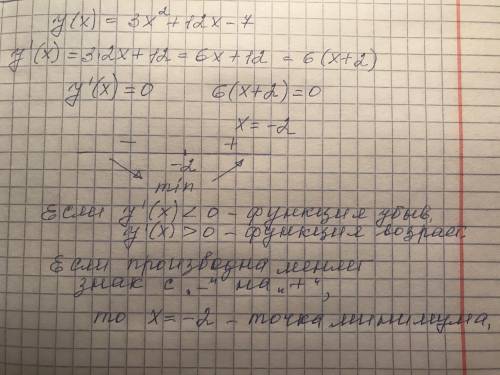 y(x) = 3x² + 12x - 7
y'(x) = 3·2x + 12 = 6x + 12 = 6(x+2)
y'(x) = 0 6(x+2) = 0
x = -2
- +
-2
min
Если y'(x) < 0 - функция убыв,
y'(x) > 0 - функция возраст.
Если производна меняет
знак с „-“ на „+“,
то x = -2 - точка минимума,